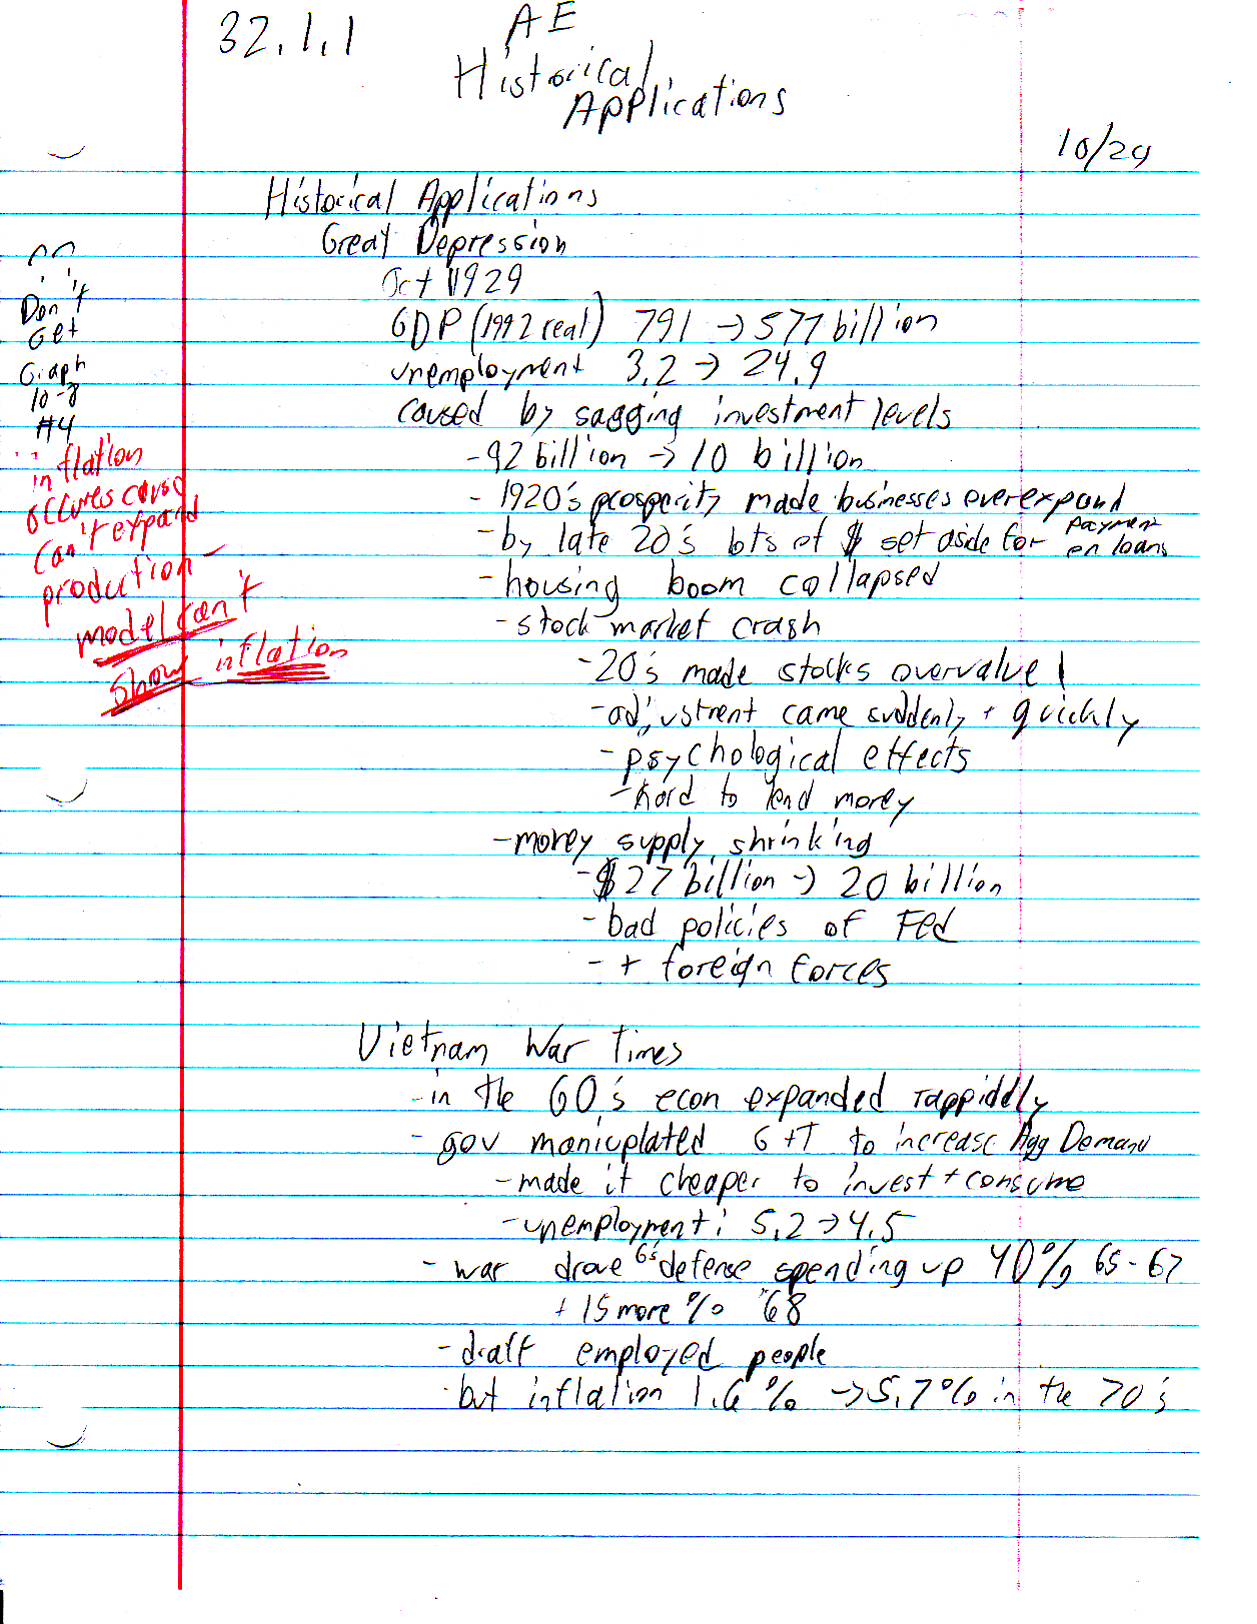 32.1.1
AE
Historical
Applications
10/29
Historical Applications
Great Depression
Oct 1929
GDP (1992 real) 791 → 577 billion
unemployment 3.2 → 24.9
caused by sagging investment levels
- 92 billion → 10 billion
- 1920's prosperity made businesses overexpand
- by late 20's lots of $ set aside for payment on loans
- housing boom collapsed
- stock market crash
- 20's made stocks overvalued
- adjustment came suddenly + quickly
- psychological effects
- hard to lend money
- money supply shrinking
- $27 billion → 20 billion
- bad policies of Fed
- + foreign forces
Vietnam War Times
- in the 60's econ expanded rappiddly
- gov manicplated G + T to increase Agg Demand
- made it cheaper to invest + consume
- unemployment: 5.2 → 4.5
- war drove G's defense spending up 40% 65-67
+ 15 more % '68
- draft employed people
- but inflation 1.6% → 5.7% in the 70's
Don't
Get
Graph
10-8
#4
inflation
occures cause
can't expand
production -
model can't
show inflation